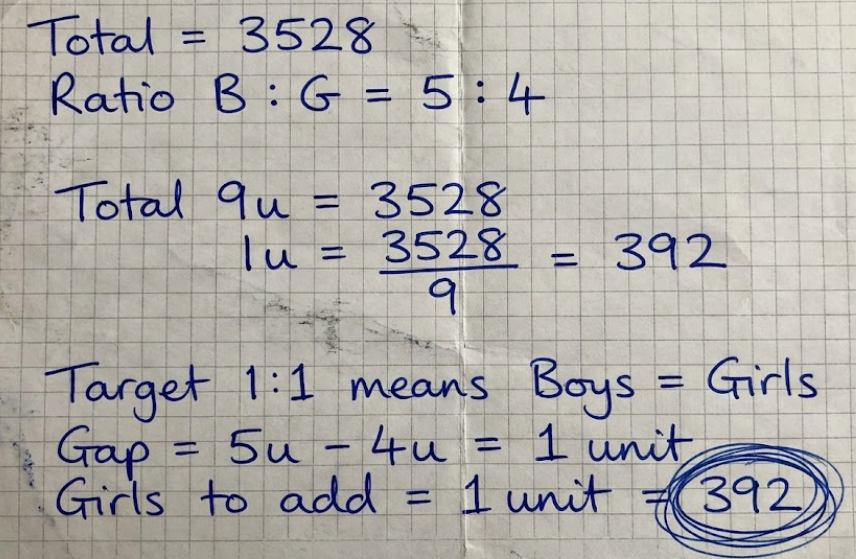 Total = 3528
Ratio B : G = 5 : 4
Total 9u = 3528
1u = 3528/9 = 392
Target 1:1 means Boys = Girls
Gap = 5u - 4u = 1 unit
Girls to add = 1 unit = 392